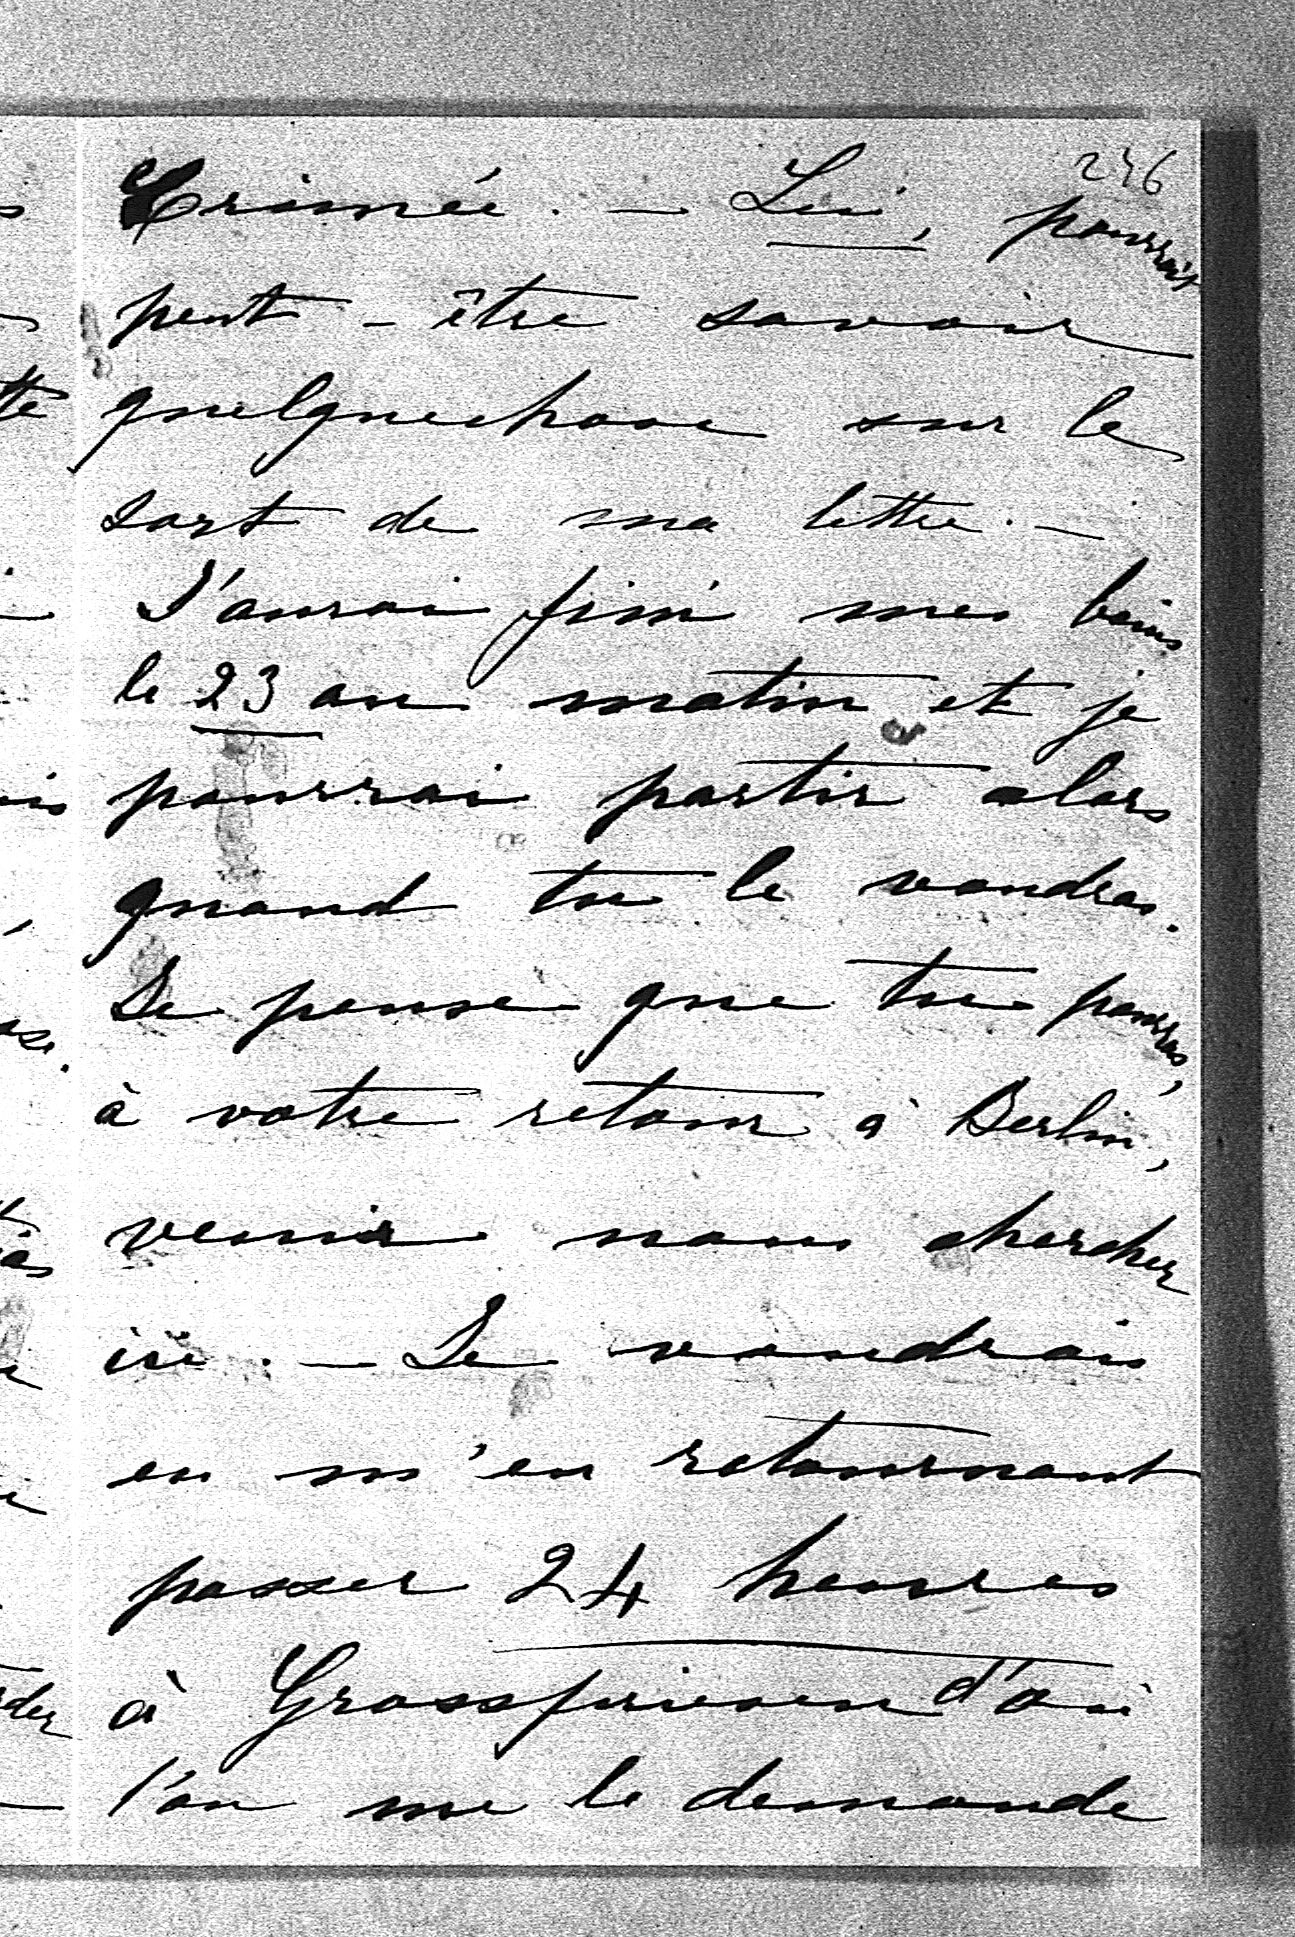 246
Crimée. — Lui, pourrait
peut-être savoir
quelquechose sur le
sort de ma lettre. —
J'aurai fini mes bains
le 23 au matin et je
pourrai partir alors
quand tu le voudras.
Je pense que tu pourras,
à votre retour à Berlin,
venir nous chercher
ici. — Je voudrais
en m'en retournant
passer 24 heures
à Grosspriesen d'où
l'on me le demande